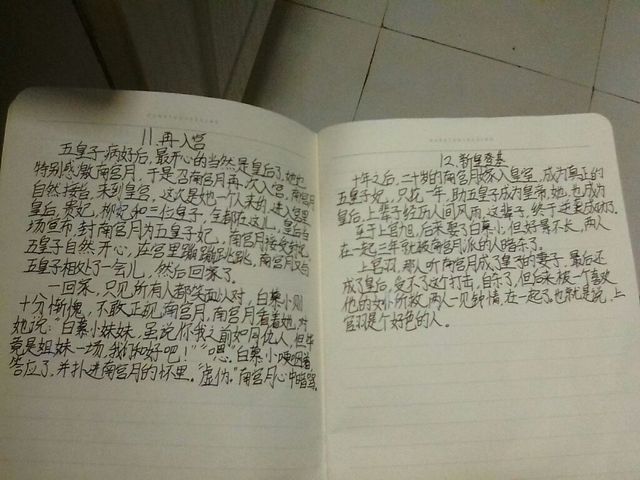 11.再入宫
五皇子病好后,最开心的当然是皇后了,她也
特别感激南宫月,于是召南宫月再次入宫,南宫月
自然接旨,来到皇宫,这次是她一个人来的,进入宫里
皇后,贵妃,柳妃和三位皇子,全都在这儿,皇后当
场宣布,封南宫月为五皇子妃,南宫月接受好礼,
五皇子自然开心,在宫里蹦蹦跳跳,南宫月又与
五皇子相处了一会儿,然后回家了。
一回家,只见所有人都笑面以对,白慕小则
十分惭愧,不敢正现南宫月,南宫月看着她,对
她说:“白慕小妹妹,虽说你我之前如同仇人,但毕
竟是姐妹一场,我们和好吧!”“嗯.”白慕小哽咽着
答应了,并扑进南宫月的怀里。“虚伪。”南宫月心中暗骂。
12.新皇登基
十年之后,二十岁的南宫月嫁入皇宫,成为真正的
五皇子妃,只花一年,助五皇子成为皇帝,她,也成为
皇后,上辈子经历人间风雨,这辈子,终于逆袭成功了。
至于上官旭,后来娶了白慕小,但好景不长,两人
在一起三年就被南宫月派的人暗杀了。
上官羽,那人听南宫月成了皇帝的妻子,最后还
成了皇后,受不了这个打击,自杀了,但后来被一个喜欢
他的女小所救,两人一见钟情,在一起了,也就是说,上
官羽是个好色的人。